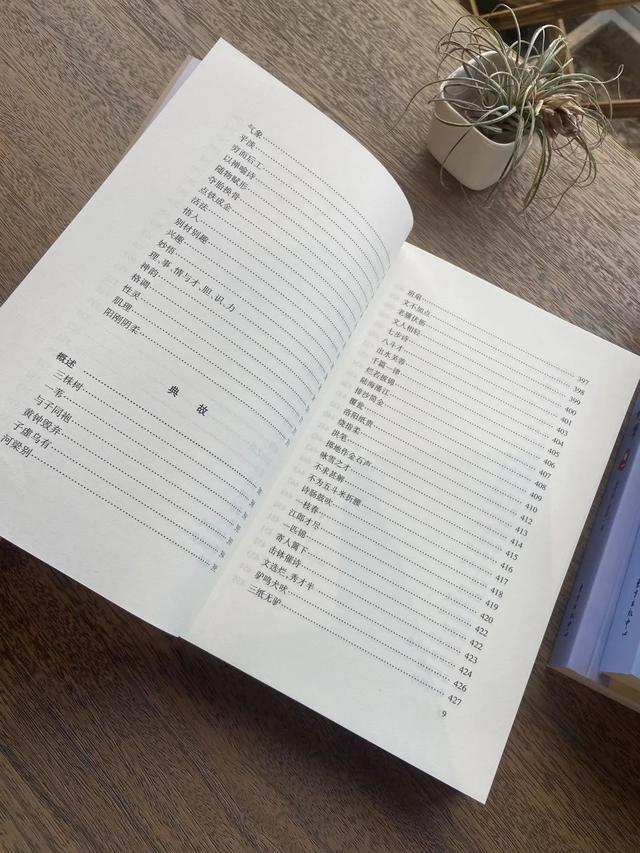 气象
平淡
穷而后工
以禅喻诗
随物赋形
夺胎换骨
点铁成金
活法
悟入
别材别趣
兴趣
妙悟
理、事、情与才、胆、识、力
神韵
格调
性灵
肌理
阳刚阴柔
典 故
概述
三株树
一苇
与子同袍
黄钟毁弃
子虚乌有
河梁别
班扇 397
文不加点 398
老骥伏枥 399
文人相轻 400
七步诗 401
八斗才
出水芙蓉 405
千篇一律 406
烂若披锦 406
陆海潘江 407
排沙简金 408
覆瓮 409
洛阳纸贵 410
绕指柔 412
洪笔 413
掷地作金石声 414
咏雪之才 415
不求甚解 416
不为五斗米折腰 417
诗肠鼓吹 418
一枝春 419
江郎才尽 420
一匹锦 422
寄人篱下 422
击钵催诗 423
文选烂,秀才半 424
驴鸣犬吠 426
三纸无驴 427
9